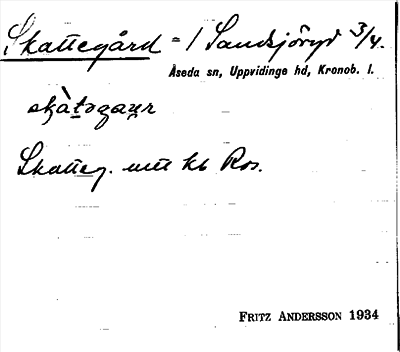 Skattegård = 1 Sandsjöryd 3/4.
Åseda sn, Uppvidinge hd, Kronob. l.
skàtǝgaɳr
Skatteg. utt kb Ros.
FRITZ ANDERSSON 1934